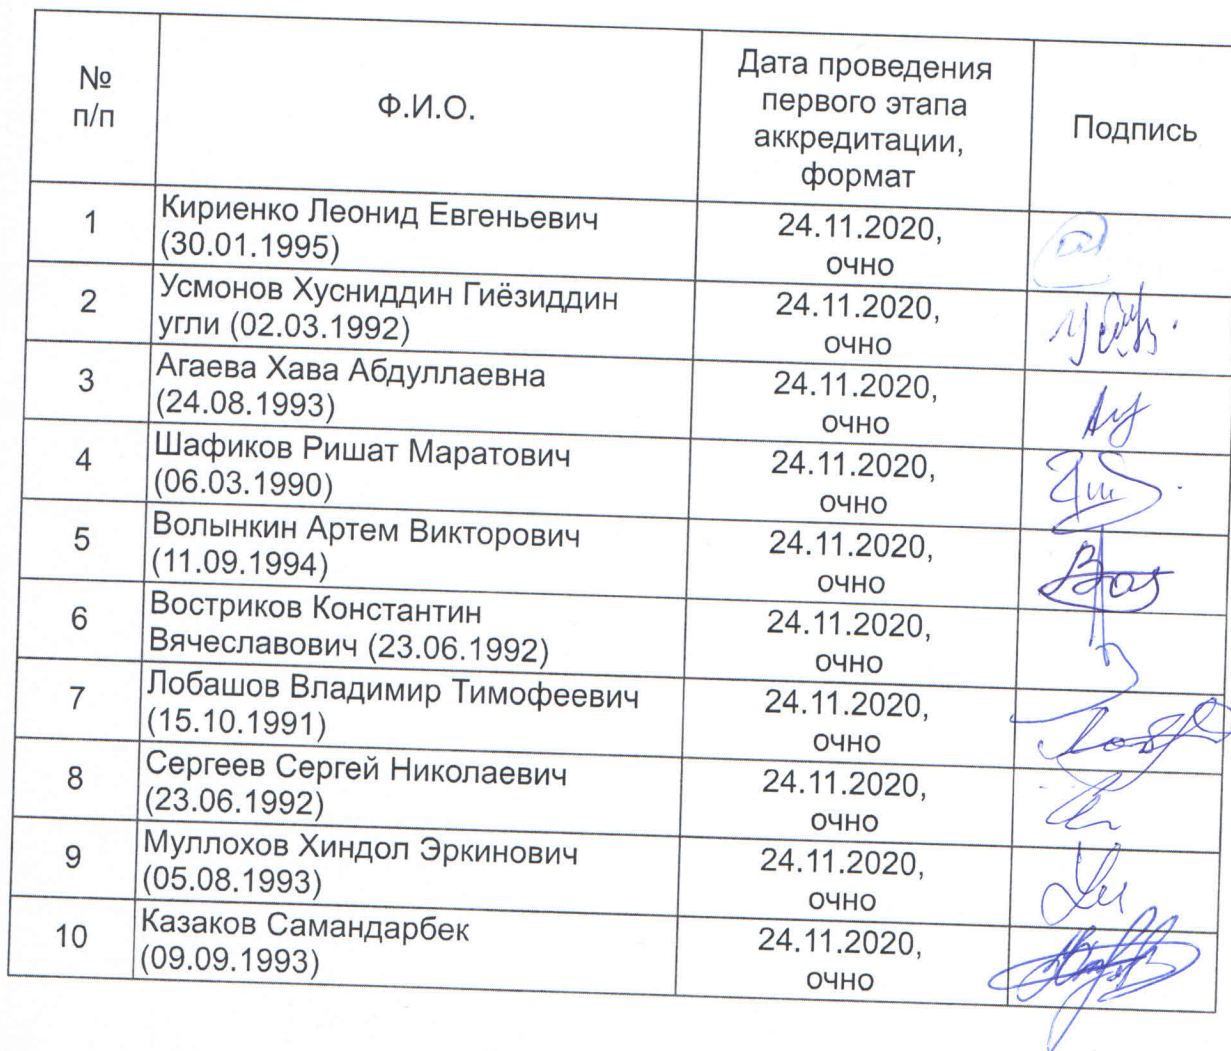 №
п/п
Ф.И.О.
Дата проведения
первого этапа
аккредитации,
формат
Подпись
1
Кириенко Леонид Евгеньевич
(30.01.1995)
24.11.2020,
очно
2
Усмонов Хусниддин Гиёзиддин
угли (02.03.1992)
24.11.2020,
очно
3
Агаева Хава Абдуллаевна
(24.08.1993)
24.11.2020,
очно
4
Шафиков Ришат Маратович
(06.03.1990)
24.11.2020,
очно
5
Волынкин Артем Викторович
(11.09.1994)
24.11.2020,
очно
6
Востриков Константин
Вячеславович (23.06.1992)
24.11.2020,
очно
7
Лобашов Владимир Тимофеевич
(15.10.1991)
24.11.2020,
очно
8
Сергеев Сергей Николаевич
(23.06.1992)
24.11.2020,
очно
9
Муллохов Хиндол Эркинович
(05.08.1993)
24.11.2020,
очно
10
Казаков Самандарбек
(09.09.1993)
24.11.2020,
очно